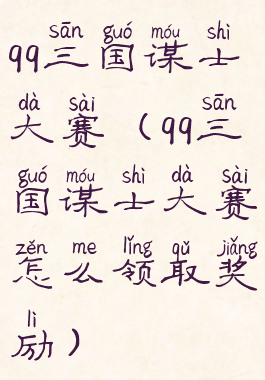 sān guó móu shì
99三国谋士
dà sài sān
大赛（99三
guó móu shì dà sài
国谋士大赛
zěn me lǐng qǔ jiǎng
怎么领取奖
lì
励）